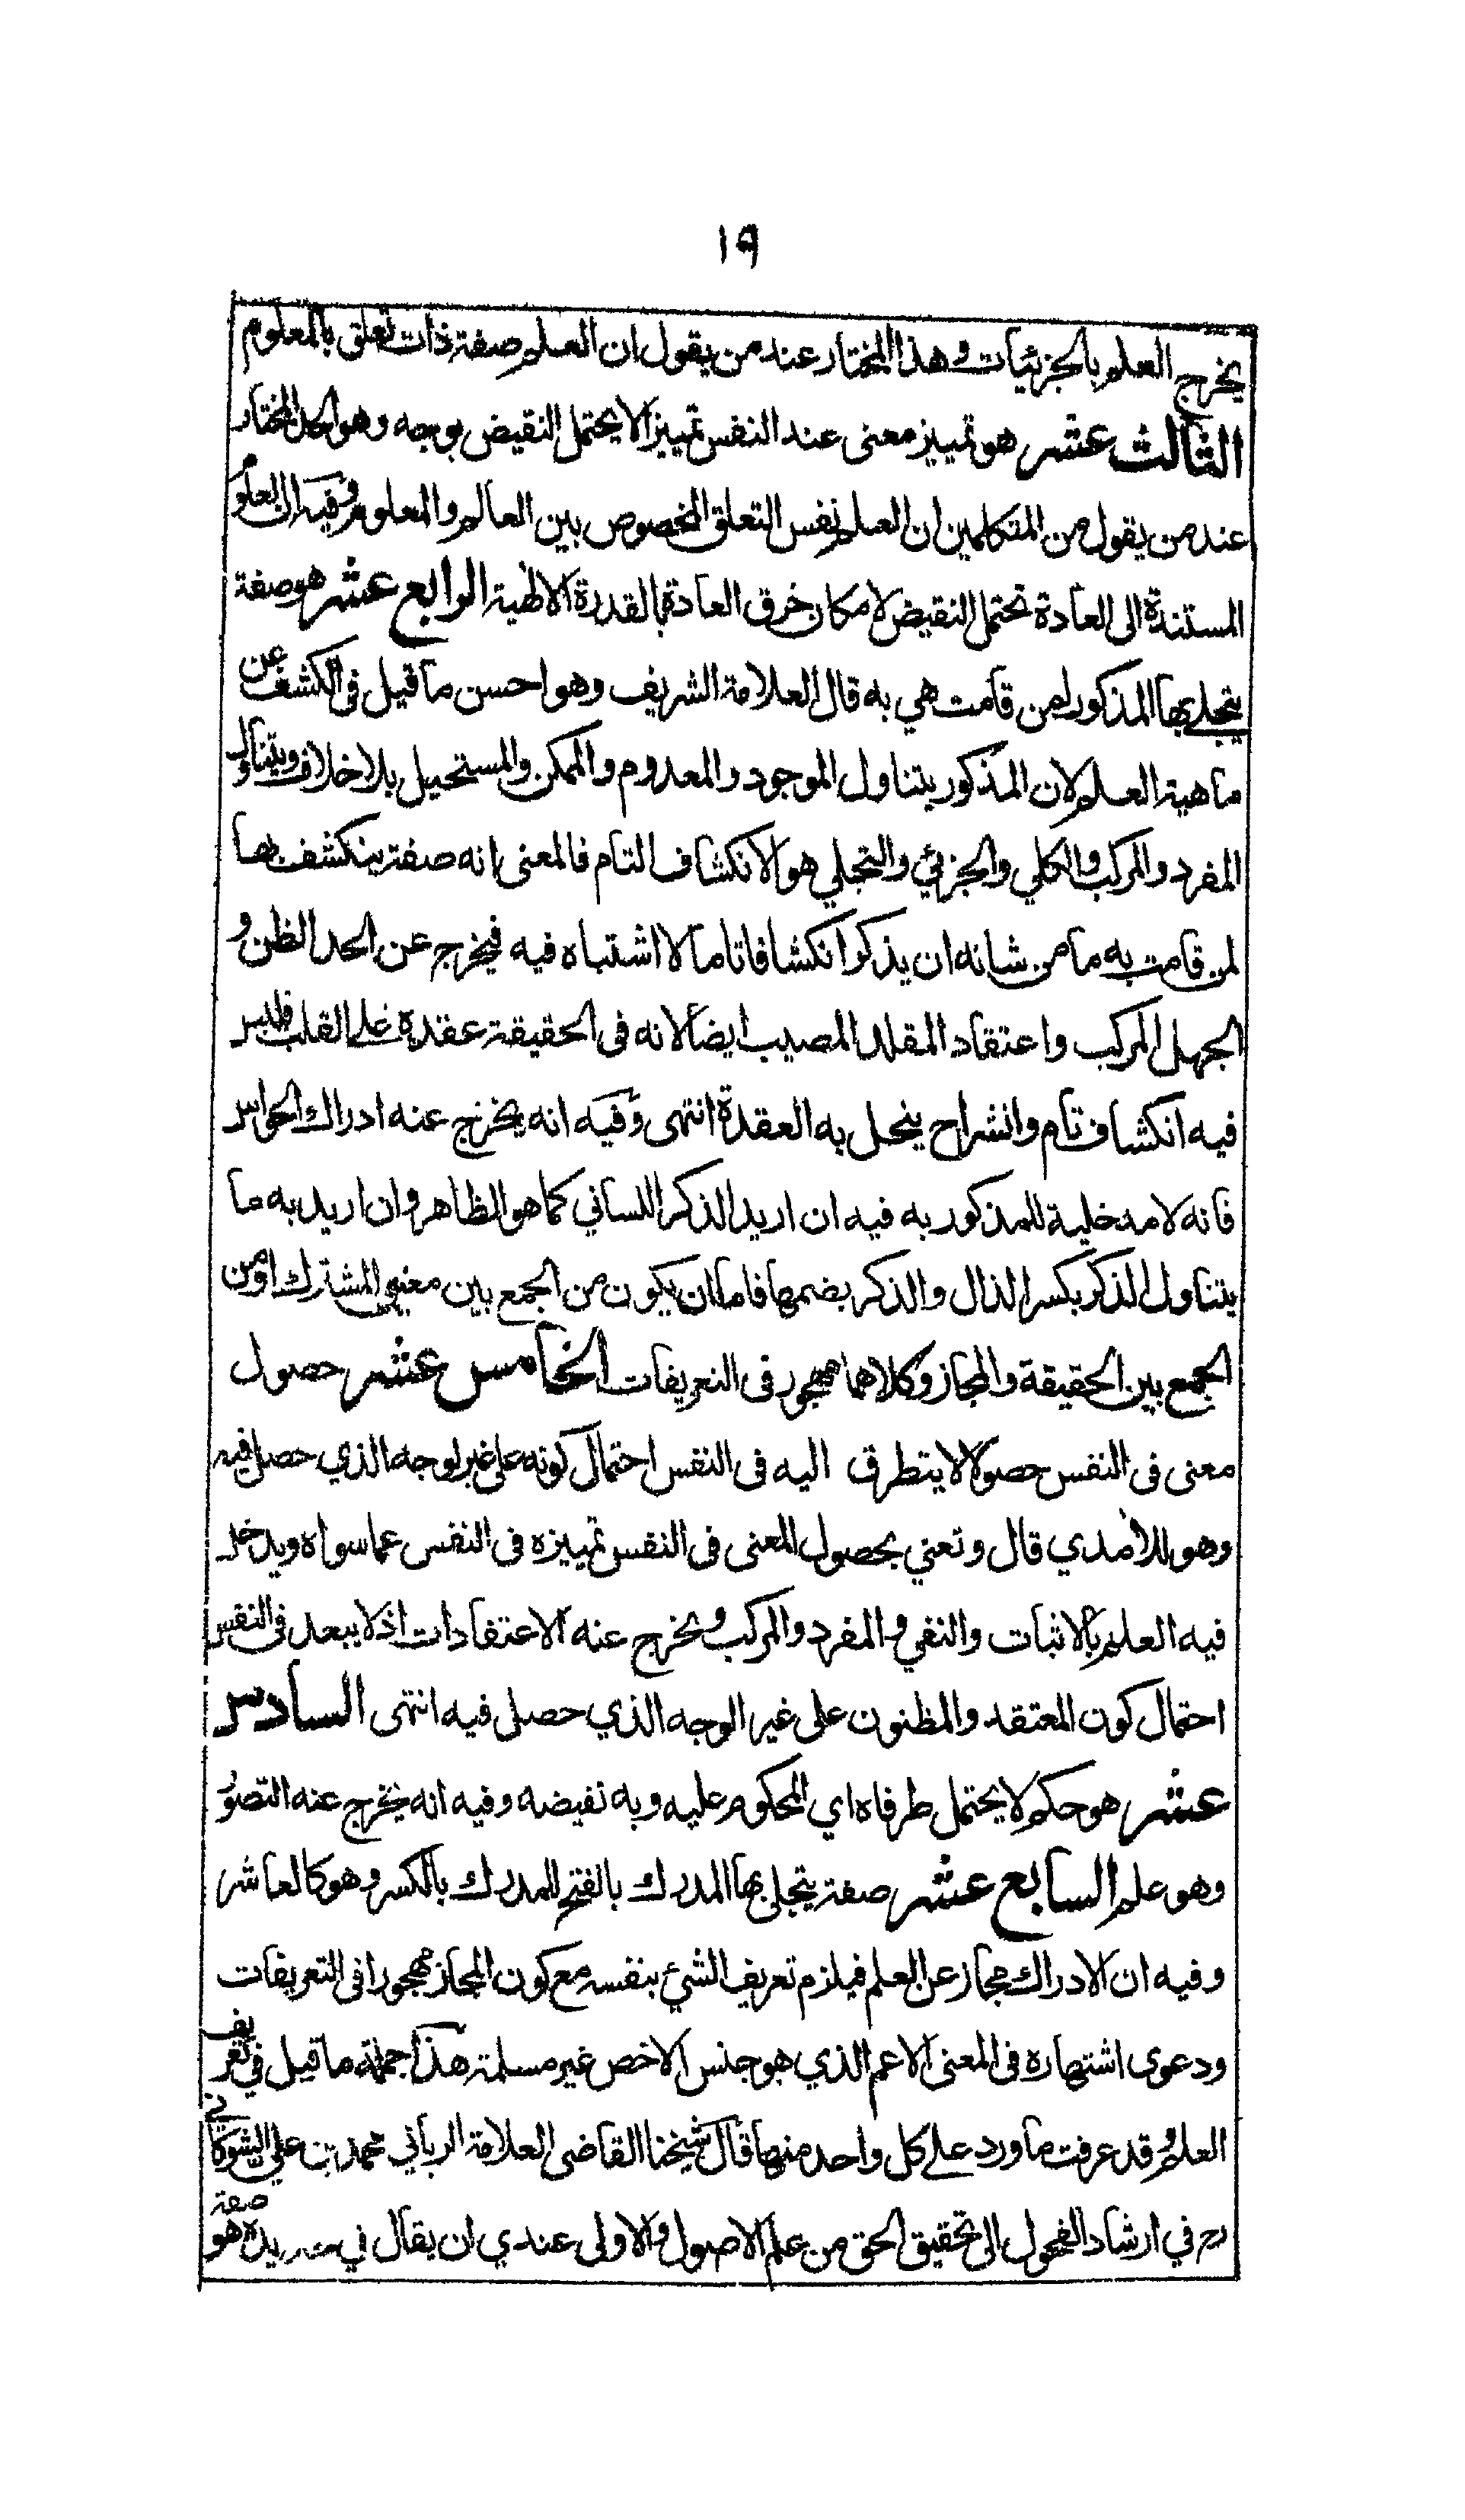 ١٩
يخرج العلم بالجزئيات وهذا المختار عند من يقول ان العلم صفة ذات تعلق بالمعلوم
الثالث عشر هو تمييز معنى عند النفس تمييزا لا يحتمل النقيض بوجه وهو الحد المختار
عند من يقول من المتكلمين ان العلم نفس التعلق المخصوص بين العالم والمعلوم وفيه ان العلوم
المستندة الى العادة تحتمل النقيض لامكان خرق العادة بالقدرة الالهية الرابع عشر هو صفة
يتجلى بها المذكور لمن قامت هي به قال العلامة الشريف وهو احسن ما قيل في الكشف عن
ماهية العلم لان المذكور يتناول الموجود والمعدوم والممكن والمستحيل بلا خلاف ويتناول
المفرد والمركب والكلي والجزئي والتجلي هو الانكشاف التام فالمعنى انه صفة ينكشف بها
لمن قامت به ما من شانه ان يذكر انكشافا تاما لا اشتباه فيه فيخرج عن الحد الظن و
الجهل المركب واعتقاد المقلد المصيب ايضا لانه في الحقيقة عقدة على القلب فليس
فيه انكشاف تام وانشراح ينحل به العقدة انتهى وفيه انه يخرج عنه ادراك الحواس
فانه لا مدخلية للمذكور به فيه ان اريد الذكر اللساني كما هو الظاهر وان اريد به ما
يتناول الذكر بكسر الذال والذكر بضمها فاما ان يكون من الجمع بين معنيي المشترك او من
الجمع بين الحقيقة والمجاز وكلاهما مهجور في التعريفات الخامس عشر حصول
معنى في النفس حصولا لا يتطرق اليه في النفس احتمال كونه على غير لوجه الذي حصل فيه
وهو للآمدي قال وتعني بحصول المعنى في النفس تمييزه في النفس عما سواه ويدخل
فيه العلم بالاثبات والنفي والمفرد والمركب ويخرج عنه الاعتقادات اذ لا يبعد في النفس
احتمال كون المعتقد والمظنون على غير الوجه الذي حصل فيه انتهى السادس
عشر هو حكم لا يحتمل طرفاه اي المحكوم عليه وبه نقيضه وفيه انه يخرج عنه التصور
وهو علم السابع عشر صفة يتجلى بها المدرك بالفتح للمدرك بالكسر وهو كالعاشر
وفيه ان الادراك مجاز عن العلم فيلزم تعريف الشيء بنفسه مع كون المجاز مهجورا في التعريفات
ودعوى اشتهاره في المعنى الاعم الذي هو جنس الاخص غير مسلمة هذا جملة ما قيل في تعريف
العلم وقد عرفت ما ورد على كل واحد منها قال شيخنا القاضي العلامة الرباني محمد بن علي الشوكاني
رح في ارشاد الفحول الى تحقيق الحق من علم الاصول والاولى عندي ان يقال في تحديده هو صفة